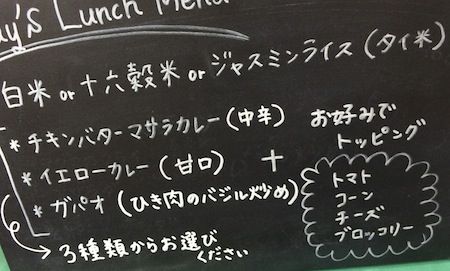 ay's Lunch Menu
白米 or 十六穀米 or ジャスミンライス (タイ米)
* チキンバターマサラカレー (中辛)
* イエローカレー (甘口)
* ガパオ (ひき肉のバジル炒め)
3種類からお選び
ください
+
お好みで
トッピング
トマト
コーン
チーズ
ブロッコリー